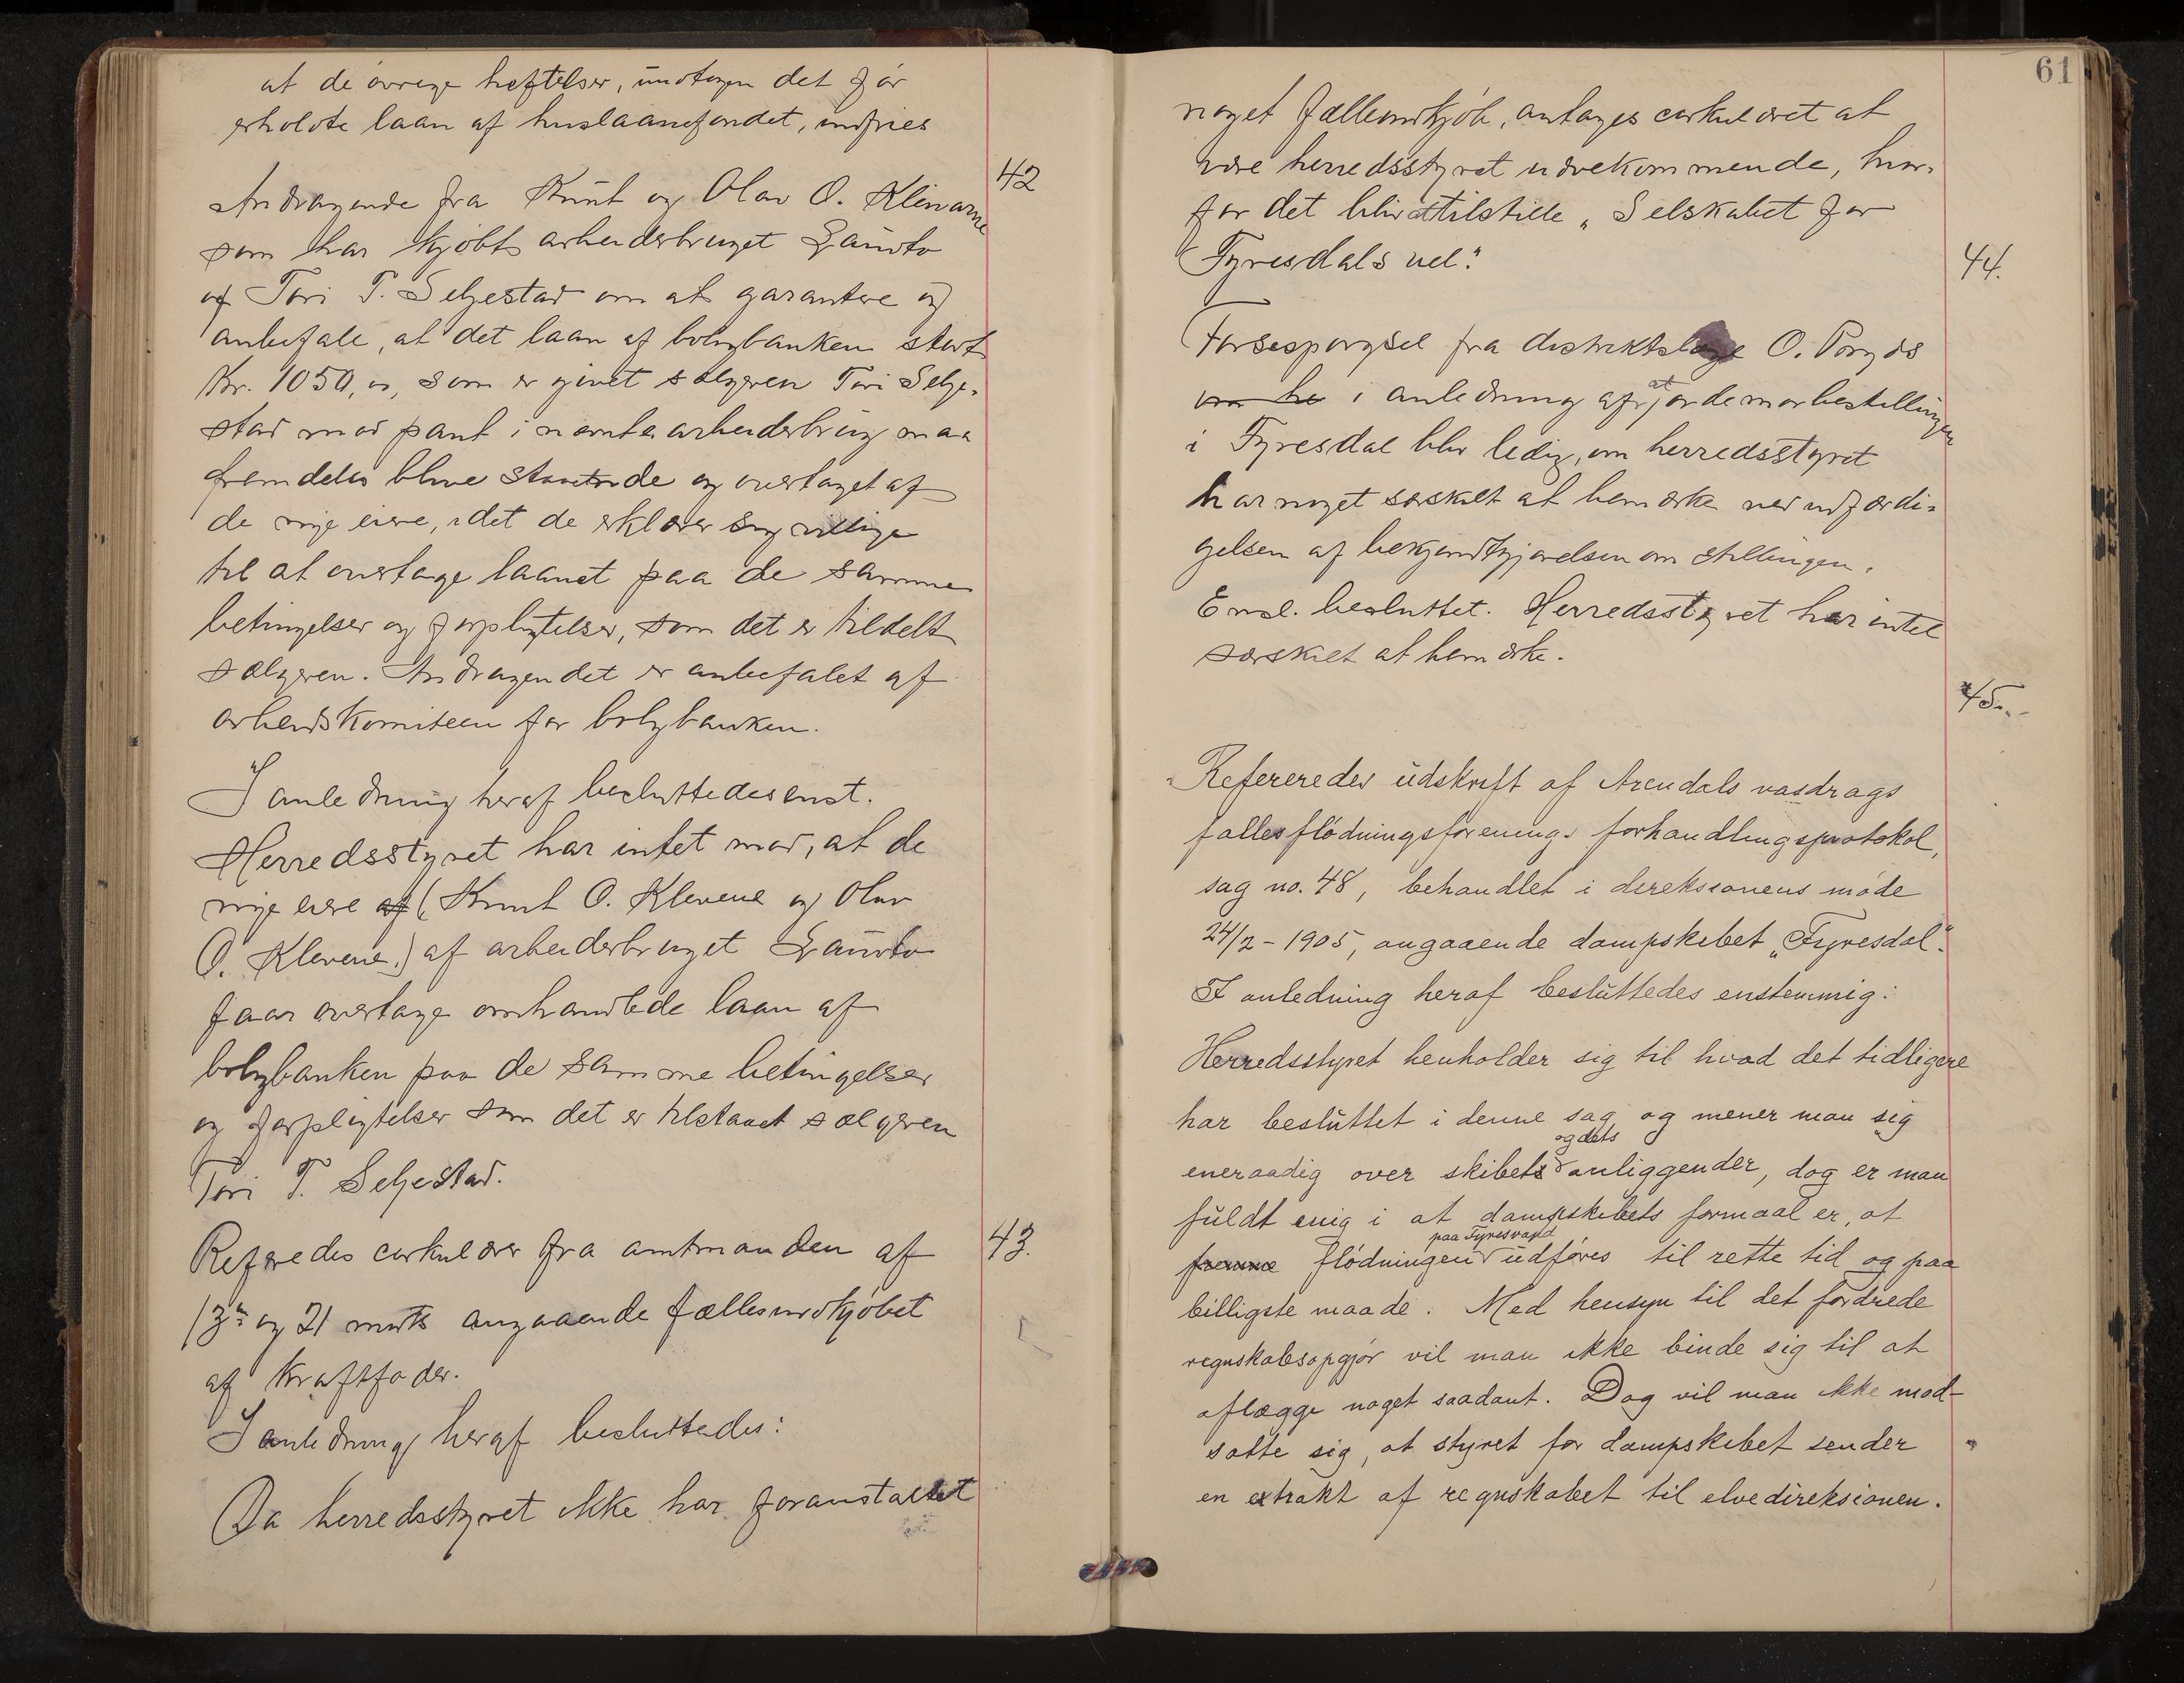 at de øvrige heftelser, undtagen det før
erholdte laan af huslaanefondet, indfries
42
Andragende fra Knut og Olav O. Klevene
som har kjøbt arbeiderbruget
af Tori T. Seljestad om at garantere og
anbefale, at det laan af boligbanken stort
Kr. 1050,00, som er givet sælgeren Tori Selje-
stad mod pant i nævnte arbeiderbrug maa
fremdeles blive staaende og overtaget af
de nye eiere, idet de erklærer sig villige
til at overtage laanet paa de samme
betingelser og forpligtelser, som det er tildelt
sælgeren. Andragendet er anbefalet af
arbeidskomiteen for boligbanken.
I anledning heraf besluttedes enst.
Herredsstyret har intet mod, at de
nye eiere af (Knut O. Klevene og Olav
O. Klevene.) af arbeiderbruget
faar overtage omhandlede laan af
boligbanken paa de samme betingelser
og forpligtelser som det er tilstaaet sælgeren
Tori T. Seljestad.
43.
Referedes cirkulærer fra amtmanden af
13de og 21 mrts angaaende fællesindkjøbet
af kraftfoder.
I anledning heraf besluttedes:
Da herredsstyret ikke har foranstaltet
61
noget fællesindkjøb, antages cirkulæret at
være herredsstyret uvedkommende, hvor-
for det blir at tilstille „Selskabet for
Fyresdals vel."
44.
Forsespørgsel fra distriktslæge O.
om he i anledning af at jordemorbestillingen
i Fyresdal blir ledig, om herredsstyret
har noget særskilt at bemærke ved udfærdi-
gelsen af bekjendtgjørelsen om stillingen.
Ensl. besluttet. Herredsstyret har intet
særskilt at bemærke.
45.
Refereredes udskrift af Arendals vasdrags
fællesflødningsforenings forhandlingsprotokol,
sag no. 48, behandlet i dereksionens møde
24/2 - 1905, angaaende dampskibet „Fyresdal".
I anledning heraf besluttedes enstemmig:
Herredsstyret henholder sig til hvad det tidligere
har besluttet i denne sag og mener man sig
eneraadig over skibets og dets anliggender, dog er man
fuldt enig i at dampskibets formaal er, at
fremme flødningen paa Fyresvand udføres til rette tid og paa
billigste maade. Med hensyn til det fordrede
regnskabsopgjør vil man ikke binde sig til at
aflægge noget saadant. Dog vil man ikke mod-
sætte sig, at styret for dampskibet sender
en extrakt af regnskabet til elvedireksionen.